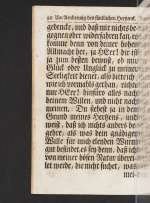 32 Um Aenderung des sündlichen Hertzens.
gedencke, und daß mir nichts be-
gegnen oder widerfahren kan, es
komme denn von deiner hohen
Allmacht her, ja HErr! dir ist
ja zum besten bewust, ob mir
Glück oder Unglück zu meiner
Seeligkeit dienet, also bitte ich
wie ich vormahls gethan, richte
nur HErr! hinführo alles nach
deinem Willen, und nicht nach
meinem. Du siehest ja den
Grund meines Hertzens, und
weist, daß ich nichts anders be-
gehre, als was dein gnädiger
Wille für mich elenden Wurm
gut befindet, es sey denn, daß ich
von meiner bösen Natur überei-
let werde, die nicht suchet, was
mei-